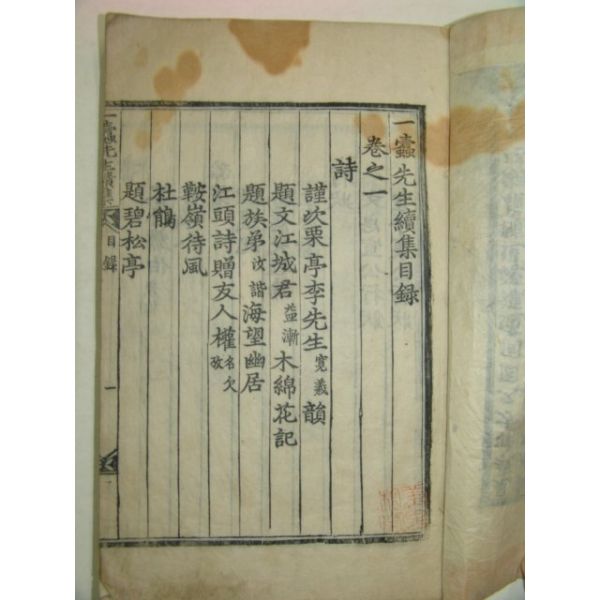 一蠹先生續集目錄
卷之一
詩
謹次栗亭李先生寬義韻
題文江城君益漸木綿花記
題族弟汝諧海望幽居
江頭詩贈友人權名欠攷
鞍嶺待風
杜鵑
題碧松亭
一蠹先生續集 目錄 一